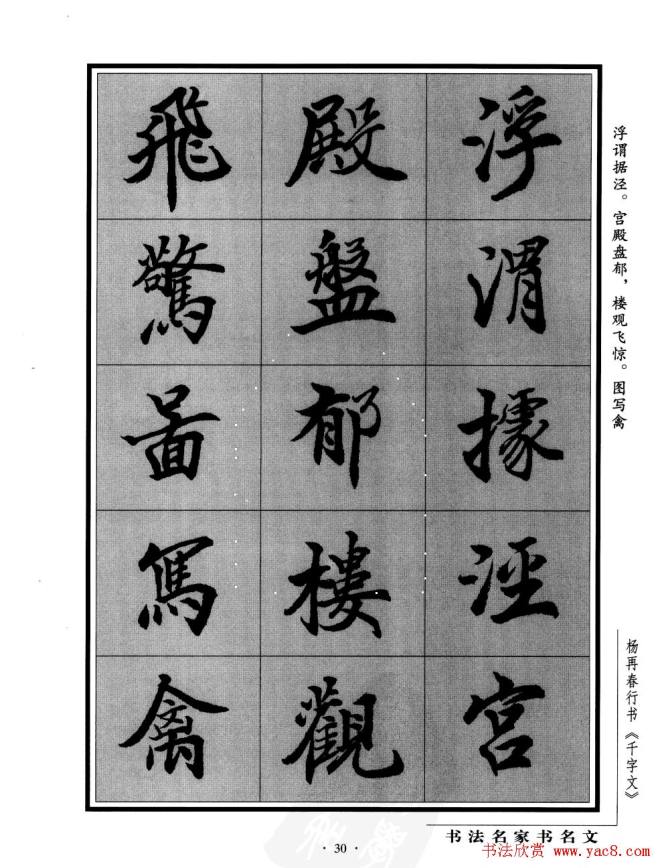 浮渭據泾宫
殿盤郁樓觀
飛驚啚寫禽
浮谓据泾。宫殿盘郁，楼观飞惊。图写禽
杨再春行书《千字文》
书法名家书名文
· 30 ·
书法欣赏 www.yac8.com